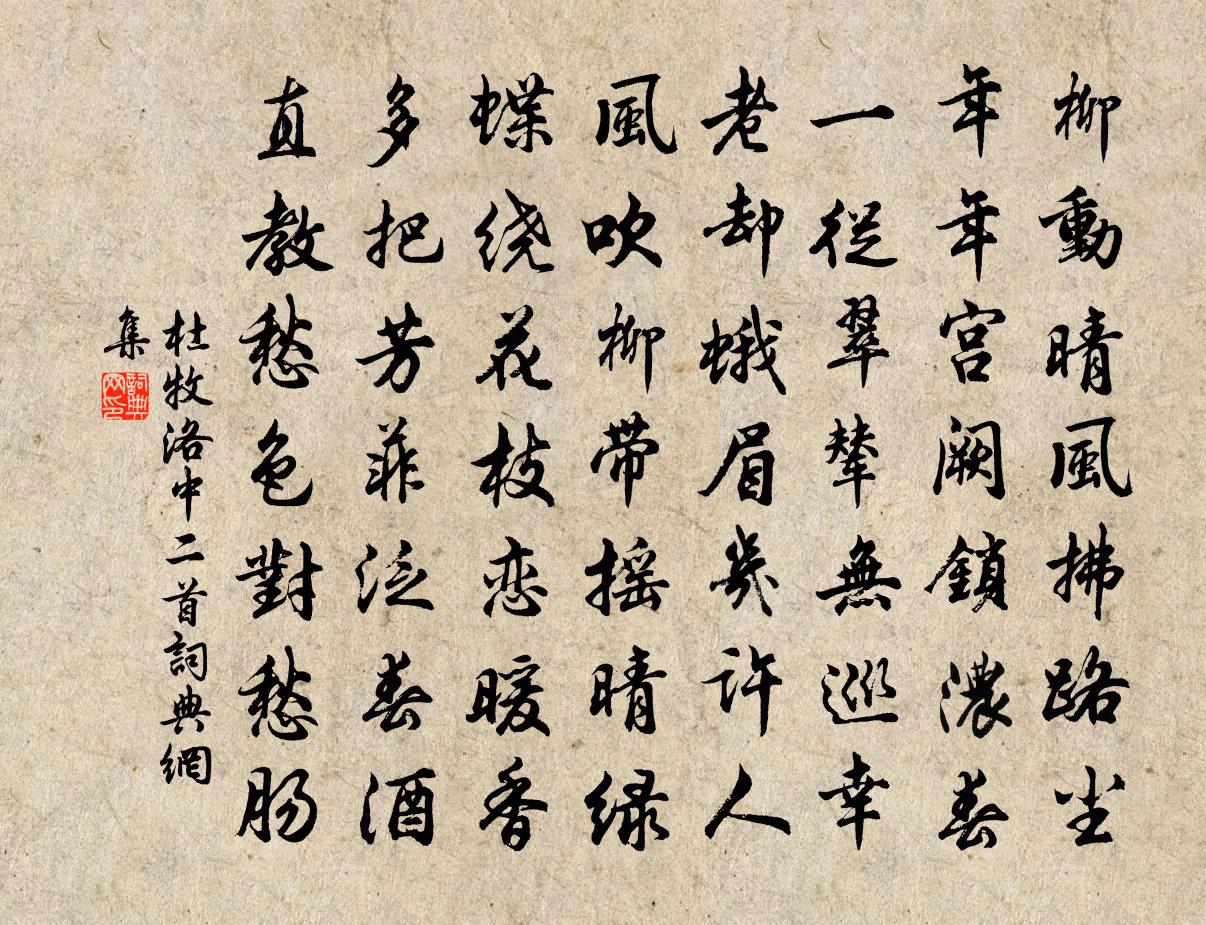 柳動晴風拂路尘
年年宫阙鎖濃春
一従翠輦無巡幸
老却蛾眉幾许人
風吹柳带摇晴緑
蝶绕花枝恋暖香
多把芳菲泛春酒
直教愁色對愁肠
杜牧洛中二首詞典網
集
詞典
网印